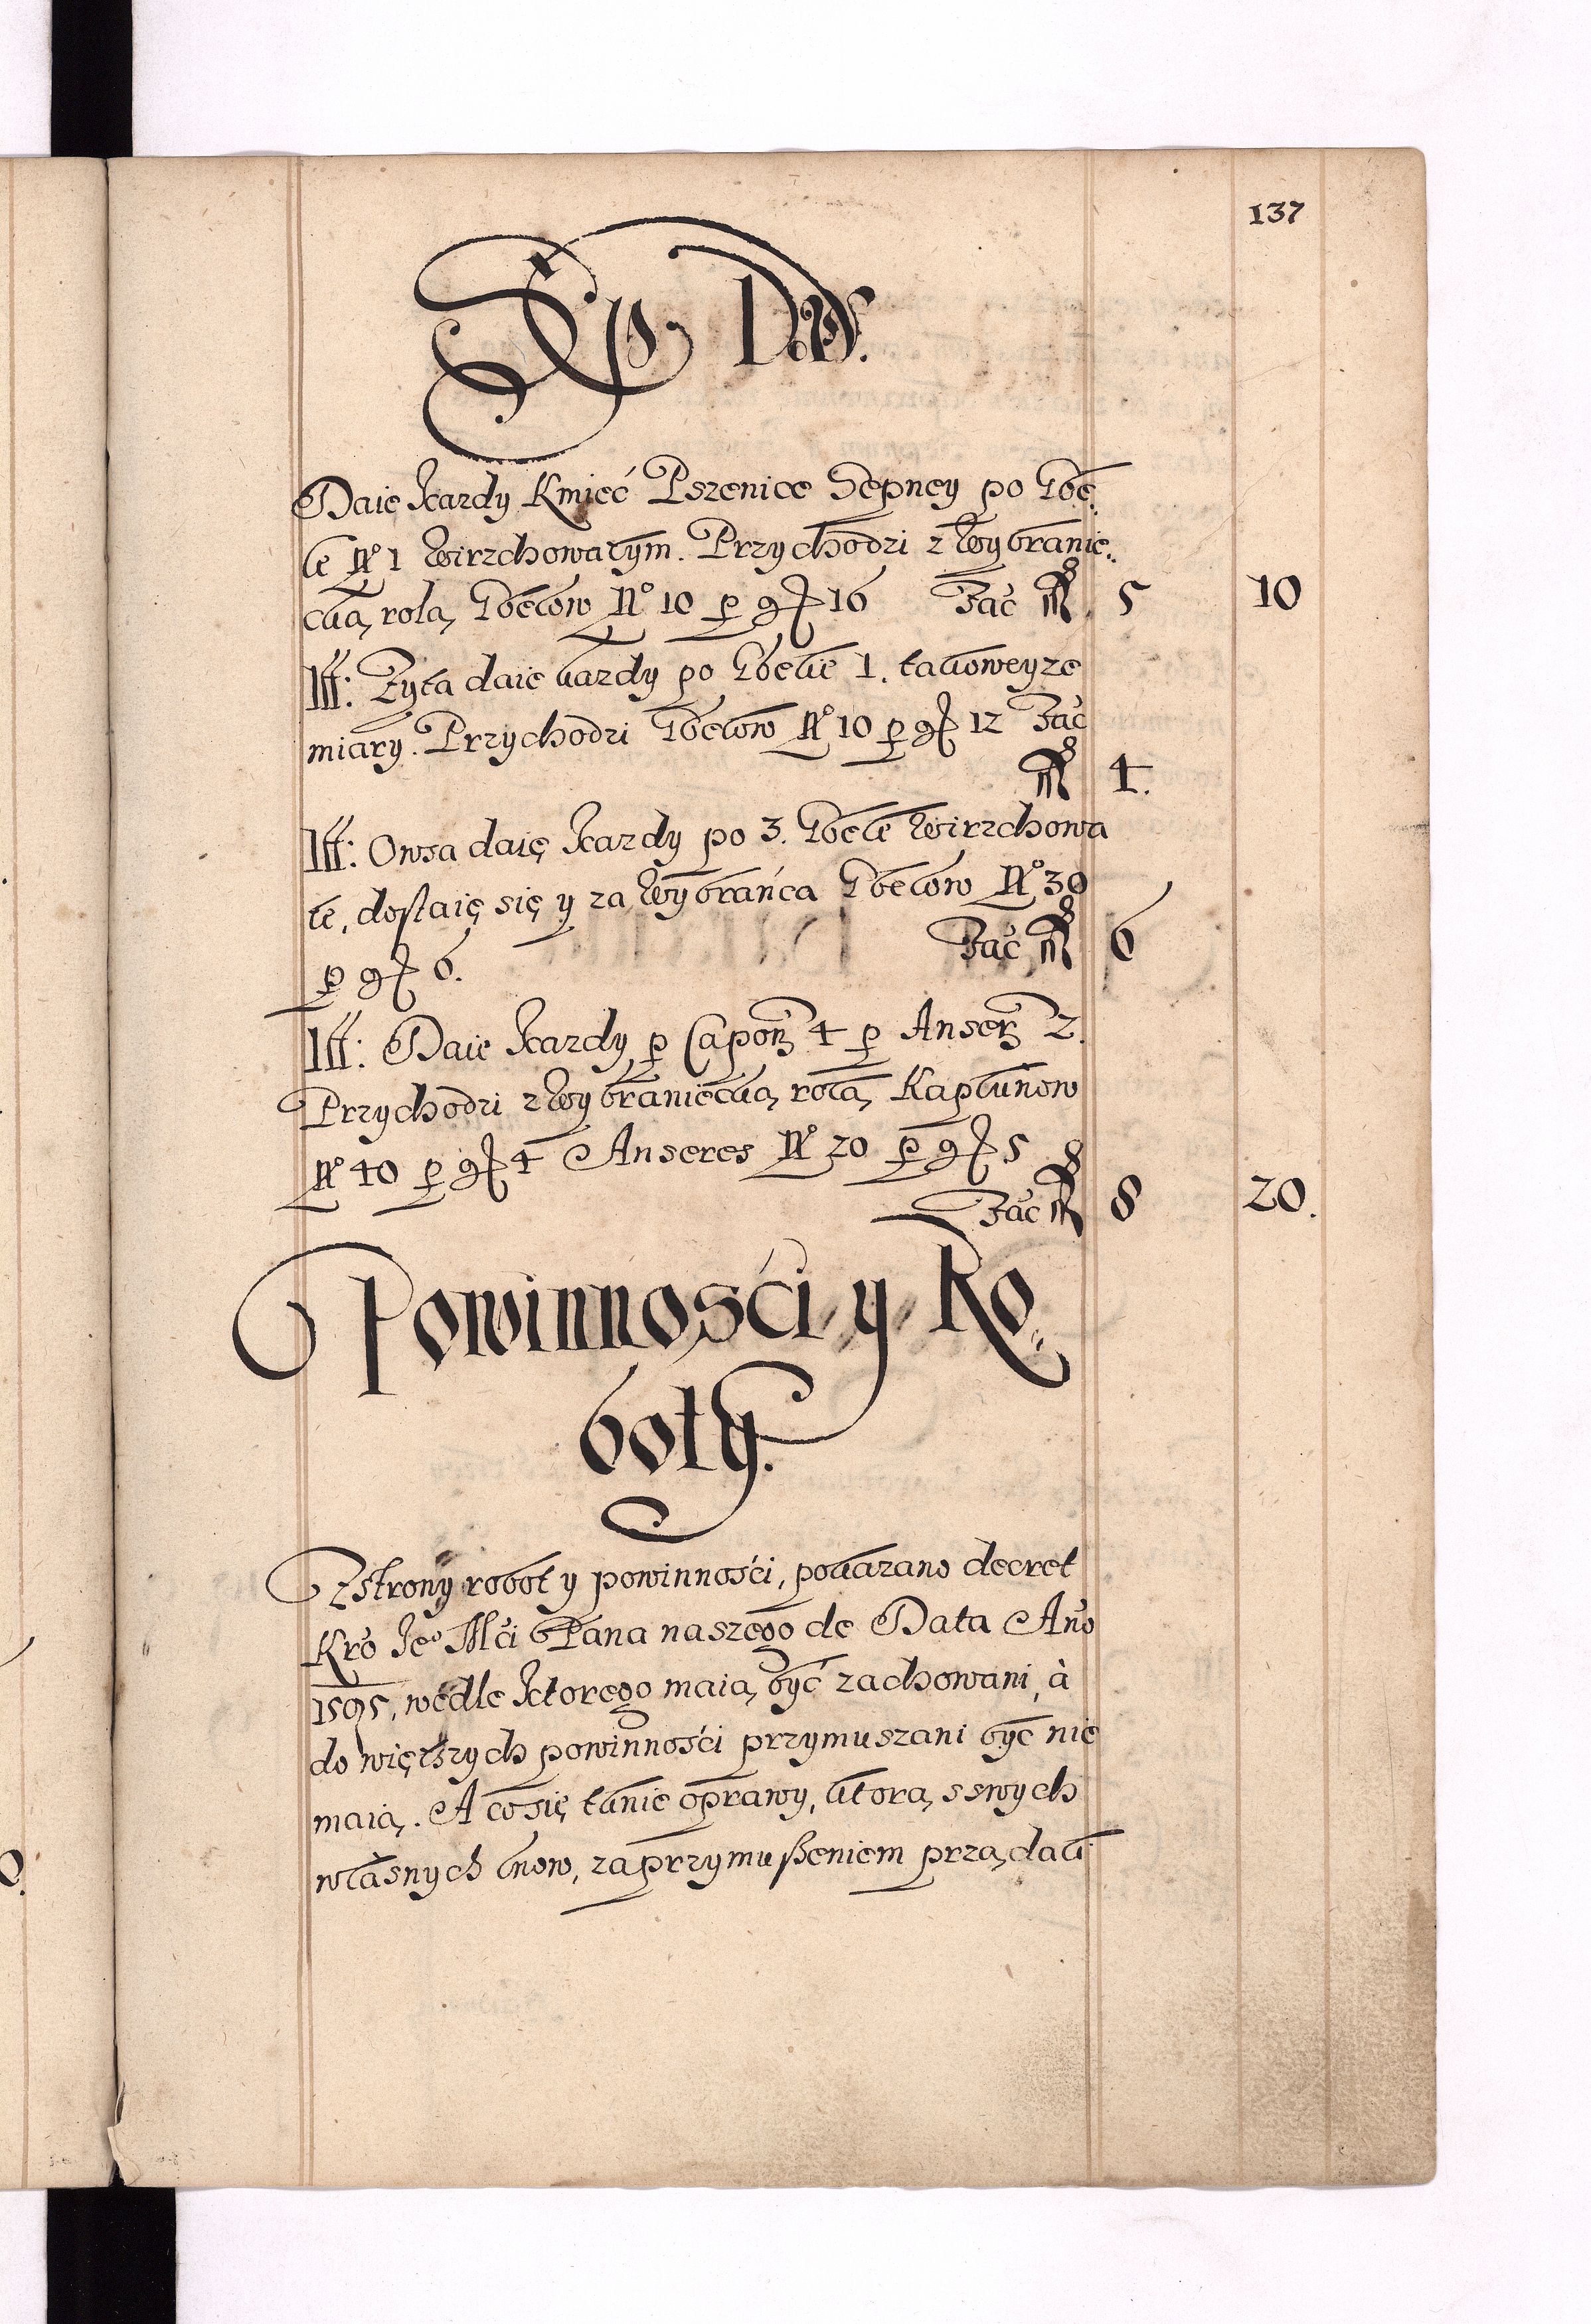 137
Sep Dws.
Daie kazdy Kmieć Pszenice Sepney po Gbe„
le N° 1 wirzchowatym. Przychodzi z wybranie„
cką rolą Gbelow N° 10 p g 16 Fać 5 10
Itt: Zyta daie kazdy po Gbelie 1. takoweyze
miary. Przychodzi Gbelow N° 10 p g 12 Fać
4.
Itt: Owsa daię kazdy po 3. Gbele wirzchowa
te, dostaię się y za wybrańca Gbelow N° 30
p g 6. Fać 6
Itt: Daie kazdy p Capon 4 p Anser 2.
Przychodzi z wybraniecką rolą Kapłunow
N° 40 p g 4 Anseres N° 20 p g 5
Fać 8 20.
Powinności y Ro„
boty.
Zstrony robot y powinności, pokazano decret
Kro Je° Mći Pana naszego de Data Ano
1595, wedle ktorego maią być zachowani, à
do więtszych powinności przymuszani być nie
maią. A co się tknie oprawy, ktorą sswych
własnych lnow, za przymuszeniem prządali